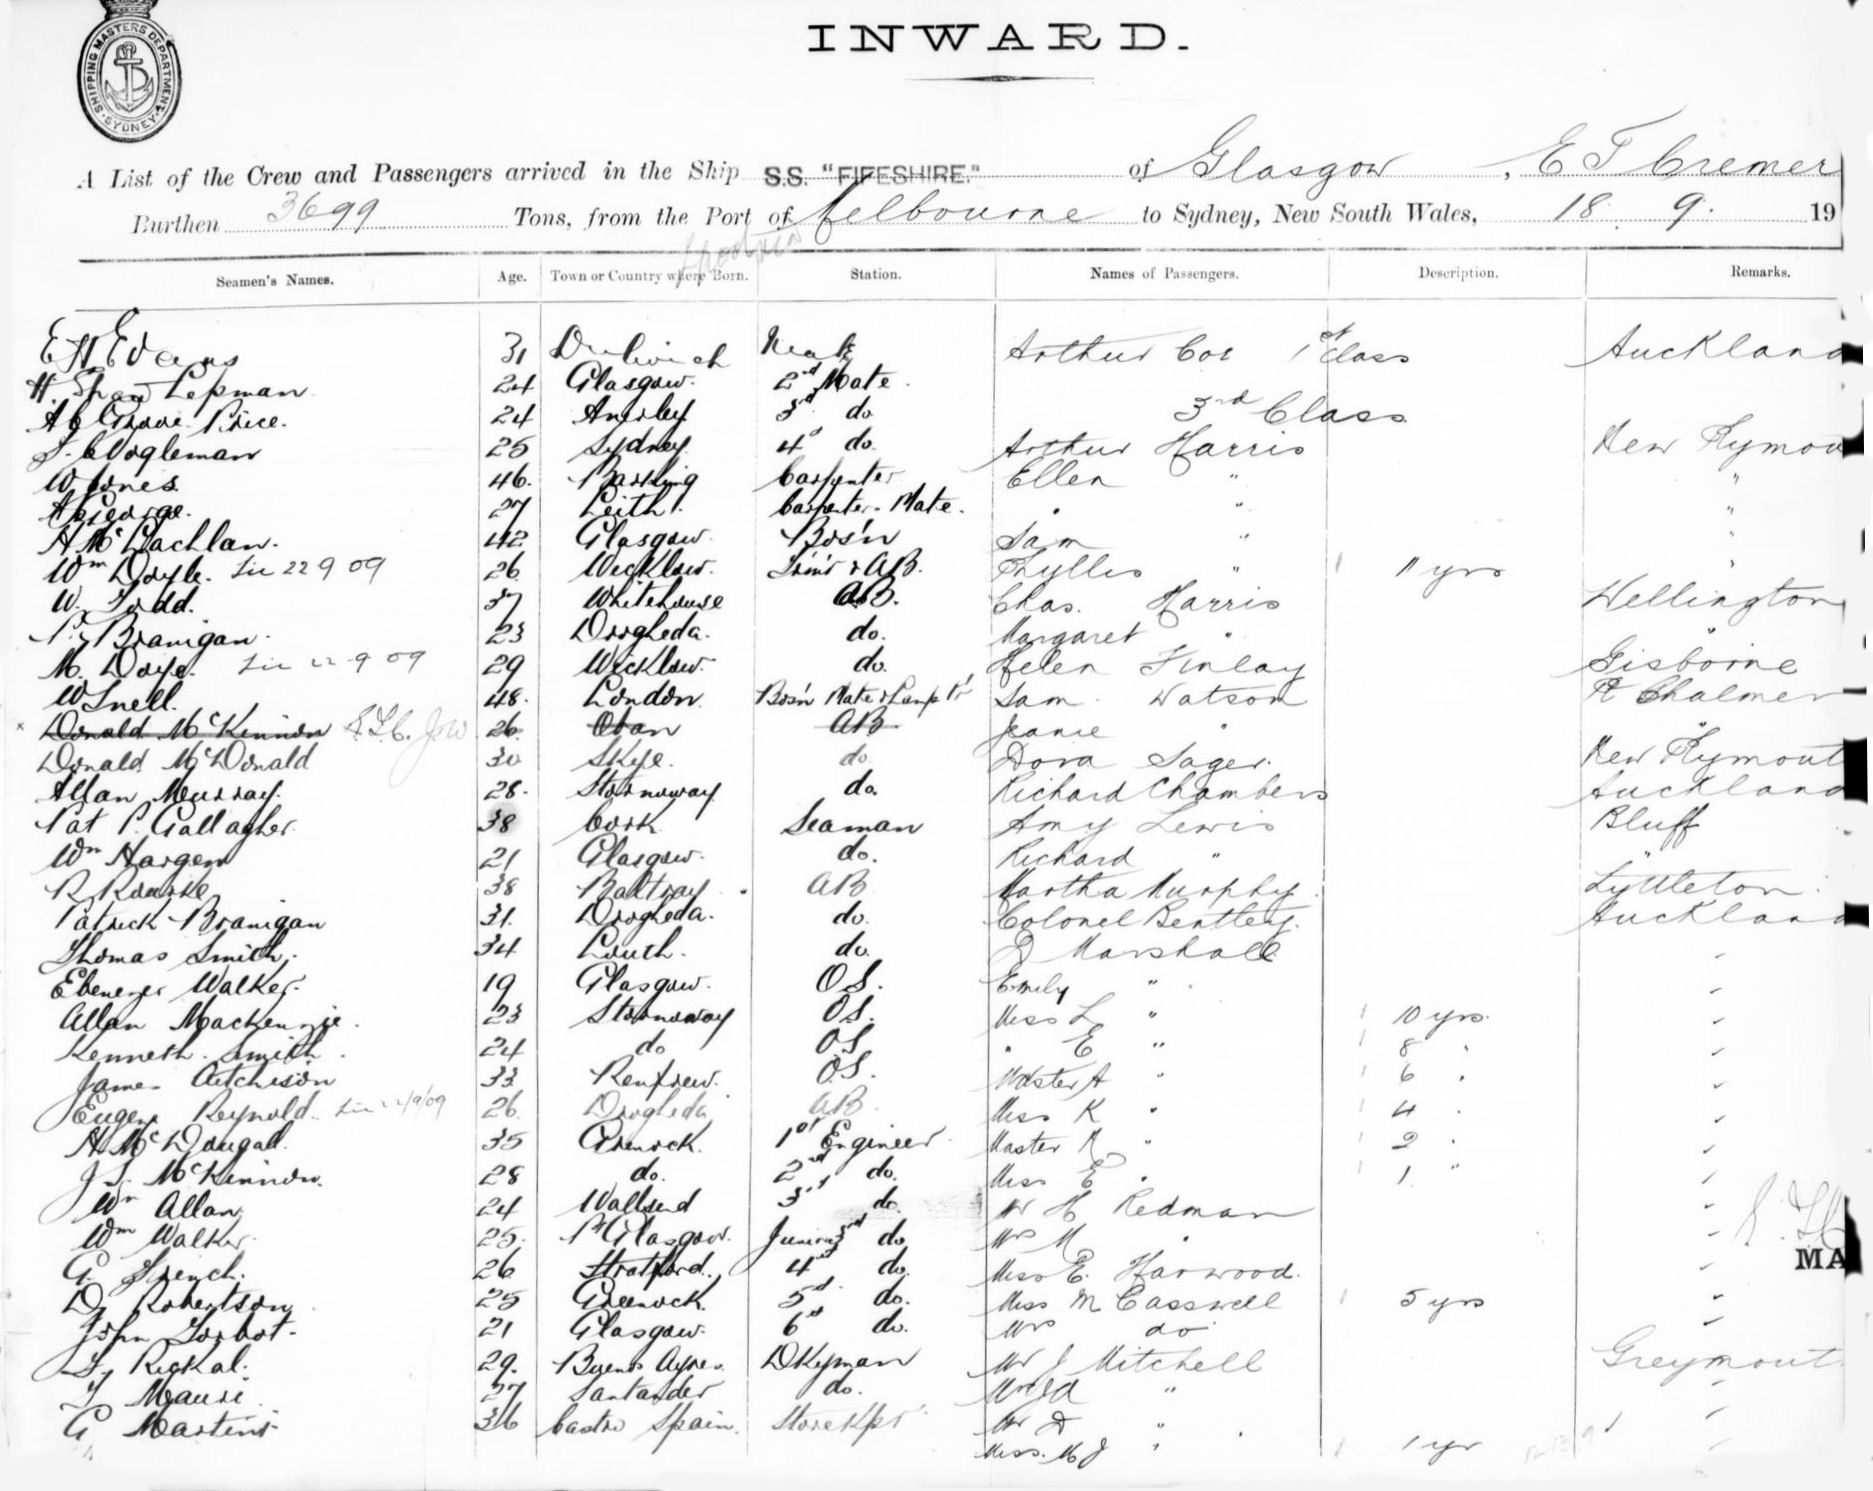 SHIPPING MASTERS DEPARTMENT SYDNEY
INWARD.
A List of the Crew and Passengers arrived in the Ship S.S. "FIFESHIRE." of Glasgow, E T Cremer
Burthen 3699 Tons, from the Port of Melbourne to Sydney, New South Wales, 18. 9. 19
Seamen's Names. Age. Town or Country where Born. Station. Names of Passengers. Description. Remarks.
E H Evans 31 Dulwich Mate Arthur Cox 1st Class Auckland
H. Shaw Lepman 24 Glasgow. 2nd Mate.
Price. 24 Anerley 3rd do 3rd Class
25 Sydney 4th do. Arthur Harris New Plymou
W Jones. 46. Barking Carpenter Ellen " "
A George. 27 Leith. Carpenter's Mate. " " "
A McLachlan. 42 Glasgow Bos'n Sam " "
Wm Doyle. Lic 22 9 09 26 Wicklow. & AB. Phyllis " 1 11 yrs "
W. Todd. 37 Whitehouse AB. Chas. Harris Wellington
P. Branigan. 23 Drogheda. do. Margaret " "
M. Doyle. Lic 22-9 09 29 Wicklow. do. Helen Finlay Gisborne
W Snell. 48. London Bos'n Mate & Lamp Tr Sam. Watson Pt Chalmer
x Donald McKinnon 26 Oban AB Jeanie " "
Donald McDonald 30 Skye. do. Dora Sager. New Plymout
Allan Murray. 28. Stornoway. do. Richard Chambers Auckland
Pat P. Gallagher. 38 Cork Seaman Amy Lewis Bluff
Wm Hargen 21 Glasgow. do. Richard " "
R Rourke 38 Baltray. AB Martha Murphy. Lyttleton.
Patrick Branigan 31. Drogheda. do. Colonel Bentley. Auckland
Thomas Smith. 34 Louth. do. D Marshall "
Ebenezer Walker. 19 Glasgow. O S. Emily " "
Allan Mackenzie. 23 Stornoway O S. Miss L " 1 10 yrs. "
Kenneth Smith. 24 do O S " E " 1 8 " "
James Aitchison 33 Renfrew. O.S. Master A " 1 6 " "
Eugene Reynold. Lic 22/9/09 26 Drogheda AB. Miss K " 1 4 " "
A McDougall. 35 Greenock. 1st Engineer Master R " 1 2 " "
J S. McKinnon. 28 do. 2nd do. Miss E " 1 1 " "
Wm Allan 24 Wallsend 3rd do. Mr H Redman "
Wm Walker. 25. P Glasgow. Junior 3rd do. Mrs M " "
G. French. 26 Stratford. 4th do. Miss E. Harwood. " MA
D Robertson 25 Greenock. 5th do. Miss M Casswell 1 5 yrs "
John Torbot. 21 Glasgow. 6th do. Mrs do "
Rickal. 29. Buenos Ayres. DKyman Mr J Mitchell Greymout
27 Santander do. "
G Martins 36 Castro Spain. StoreKpr Mr D " "
Miss. M J " 1 1 yr "